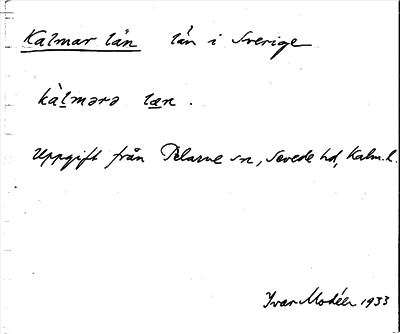 Kalmar län län i Sverige
kàlmərə læn .
Uppgift från Pelarne sn, Sevede hd, Kalm. l.
Ivar Modéer 1933